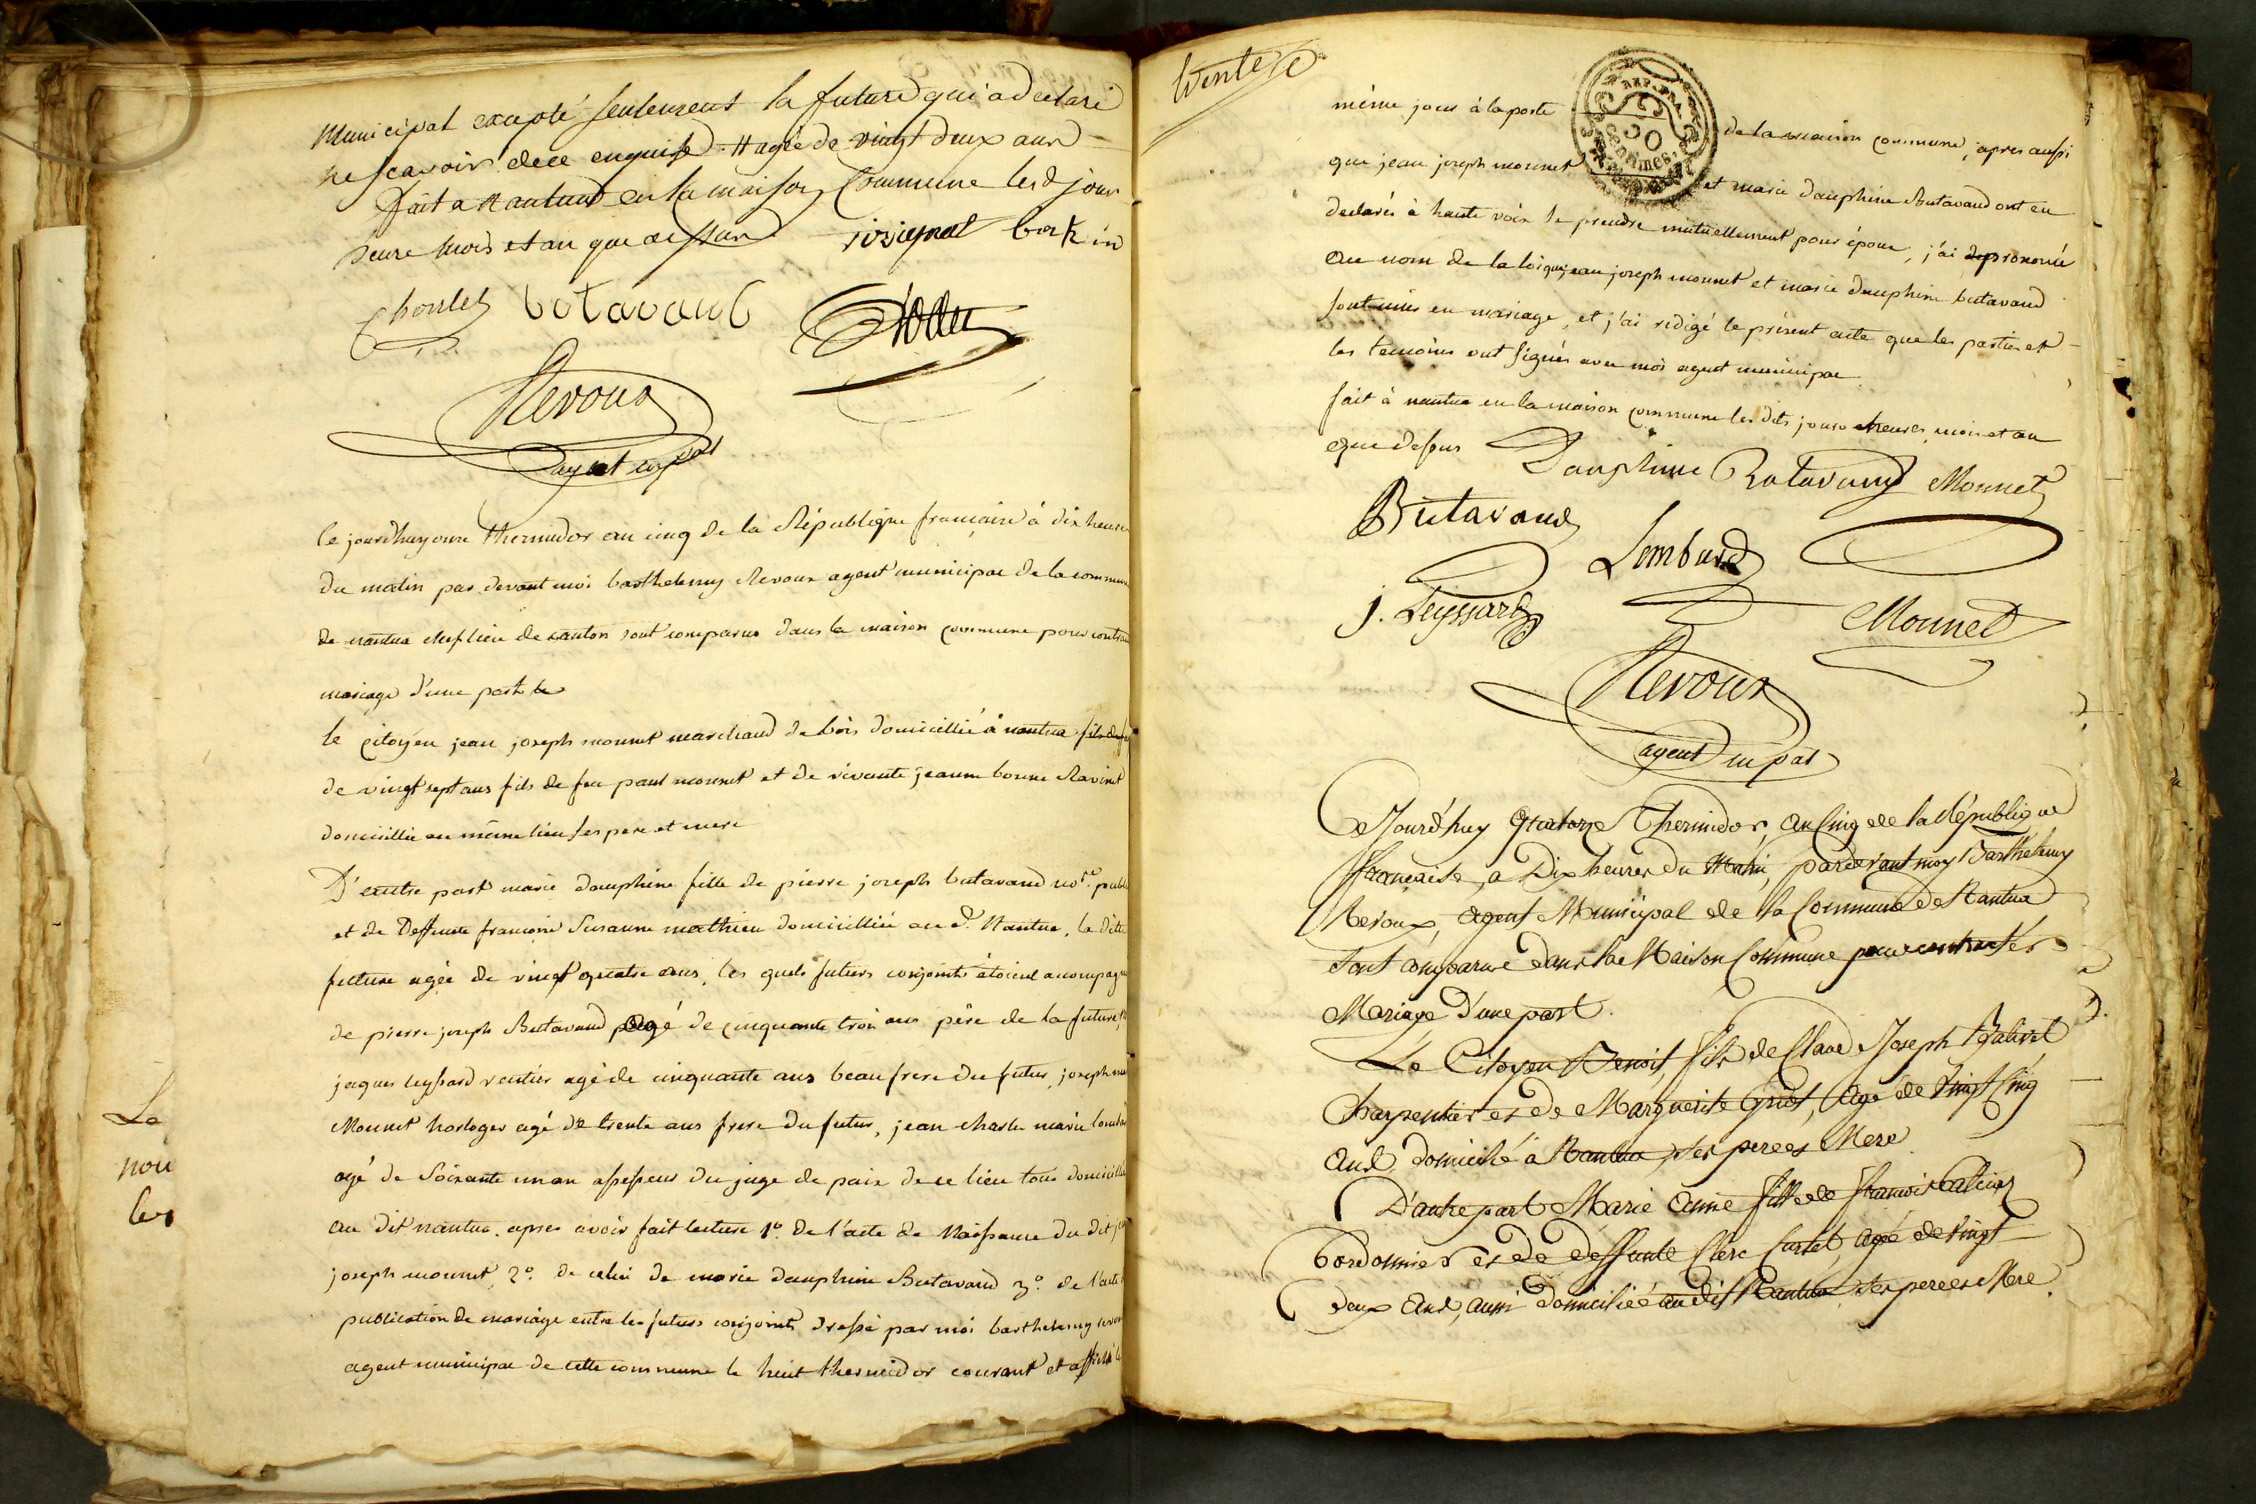 Municipal excepté seulement la future qui a declaré
ne scavoir de ce enquise # agée de vingt deux ans
fait a Nantua en la maison Commune lesd jour
heure mois et an que dessus
butavand
Revoux
agent mpal
le jourdhuy onze thermidor an cinq de la République francaise à dix heures
du matin par devant moi barthelemy Revoux agent municipal de la commune
de nantua chef lieu de canton sont comparus dans la maison commune pour contra
mariage d'une part le
le citoyen jean joseph monnet marchand de bois domicillié à nantua
de vingt sept ans fils de feu paul monnet et de vivante jeanne bonne Ravinet
domicillié au même lieu ses pere et mere
D'autre part marie dauphine fille de pierre joseph butavand not.re publ
et de Deffunte francoise Susanne mathieu domicilliée au d. Nantua, la ditte
future agée de vingt quatre ans, les quels futurs conjoints étoient acompagn
de pierre joseph Butavand agé de cinquante trois ans père de la future,
jaques leyssard rentier agé de cinquante ans beau frere du futur, joseph
Monnet horloger agé de trente ans frere du futur, jean charle marie lomba
agé de Soixante un an assesseur du juge de paix de ce lieu tous domicillié
au dit nantua. apres avoir fait lecture 1°. de l'acte de Naissance du dit j
joseph monnet, 2°. de celui de marie dauphine Butavand 3°. de l'acte
publication de mariage entre les futurs conjoints dressé par moi barthelemy revou
agent municipal de cette commune le huit thermidor courant et affiché le
Le
nou
les
trente
même jour à la porte de la maison commune, apres aussi
REP. FRA.
50
centimes.
que jean joseph monnet et marie dauphine Butavand ont eu
declarés à haute voix se prendre mutuellement pour époux, j'ai prononcé
au nom de la loi que jean joseph monnet et marie dauphine butavand
sont unis en mariage, et j'ai redigé le présent acte que les parties et
les temoins ont signés avec moi agent municipal
fait à nantua en la maison commune les dits jour heures, mois et an
que dessus Dauphine Butavand Monnet
Butavand Lombard
J. Leyssard Monnet
Revoux
agent mpal
Cejourd'huy quatorze Thermidor, an Cinq de la République
francaise, a Dix heures du Matin, pardevant moy Barthelemy
Revoux, agent Municipal de la Commune de Nantua
sont comparus dans la Maison Commune pour contracter
Mariage d'une part.
Le Citoyen Benoit, fils de Claude Joseph
Charpentier et de Marguerite, agé de Vingt Cinq
ans, domicilié a Nantua, ses pere et Mere
D'autre part Marie anne fille de francois
Cordonnier et de deffunte Clere, agée de vingt
deux ans, aussi domiciliée au dit Nantua ses pere et Mere.